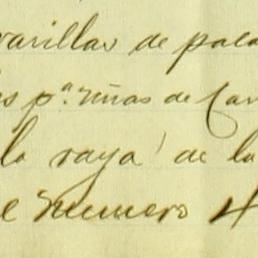 varillas de pala
s pª. uñas de Car
la raya de la
e numero 4